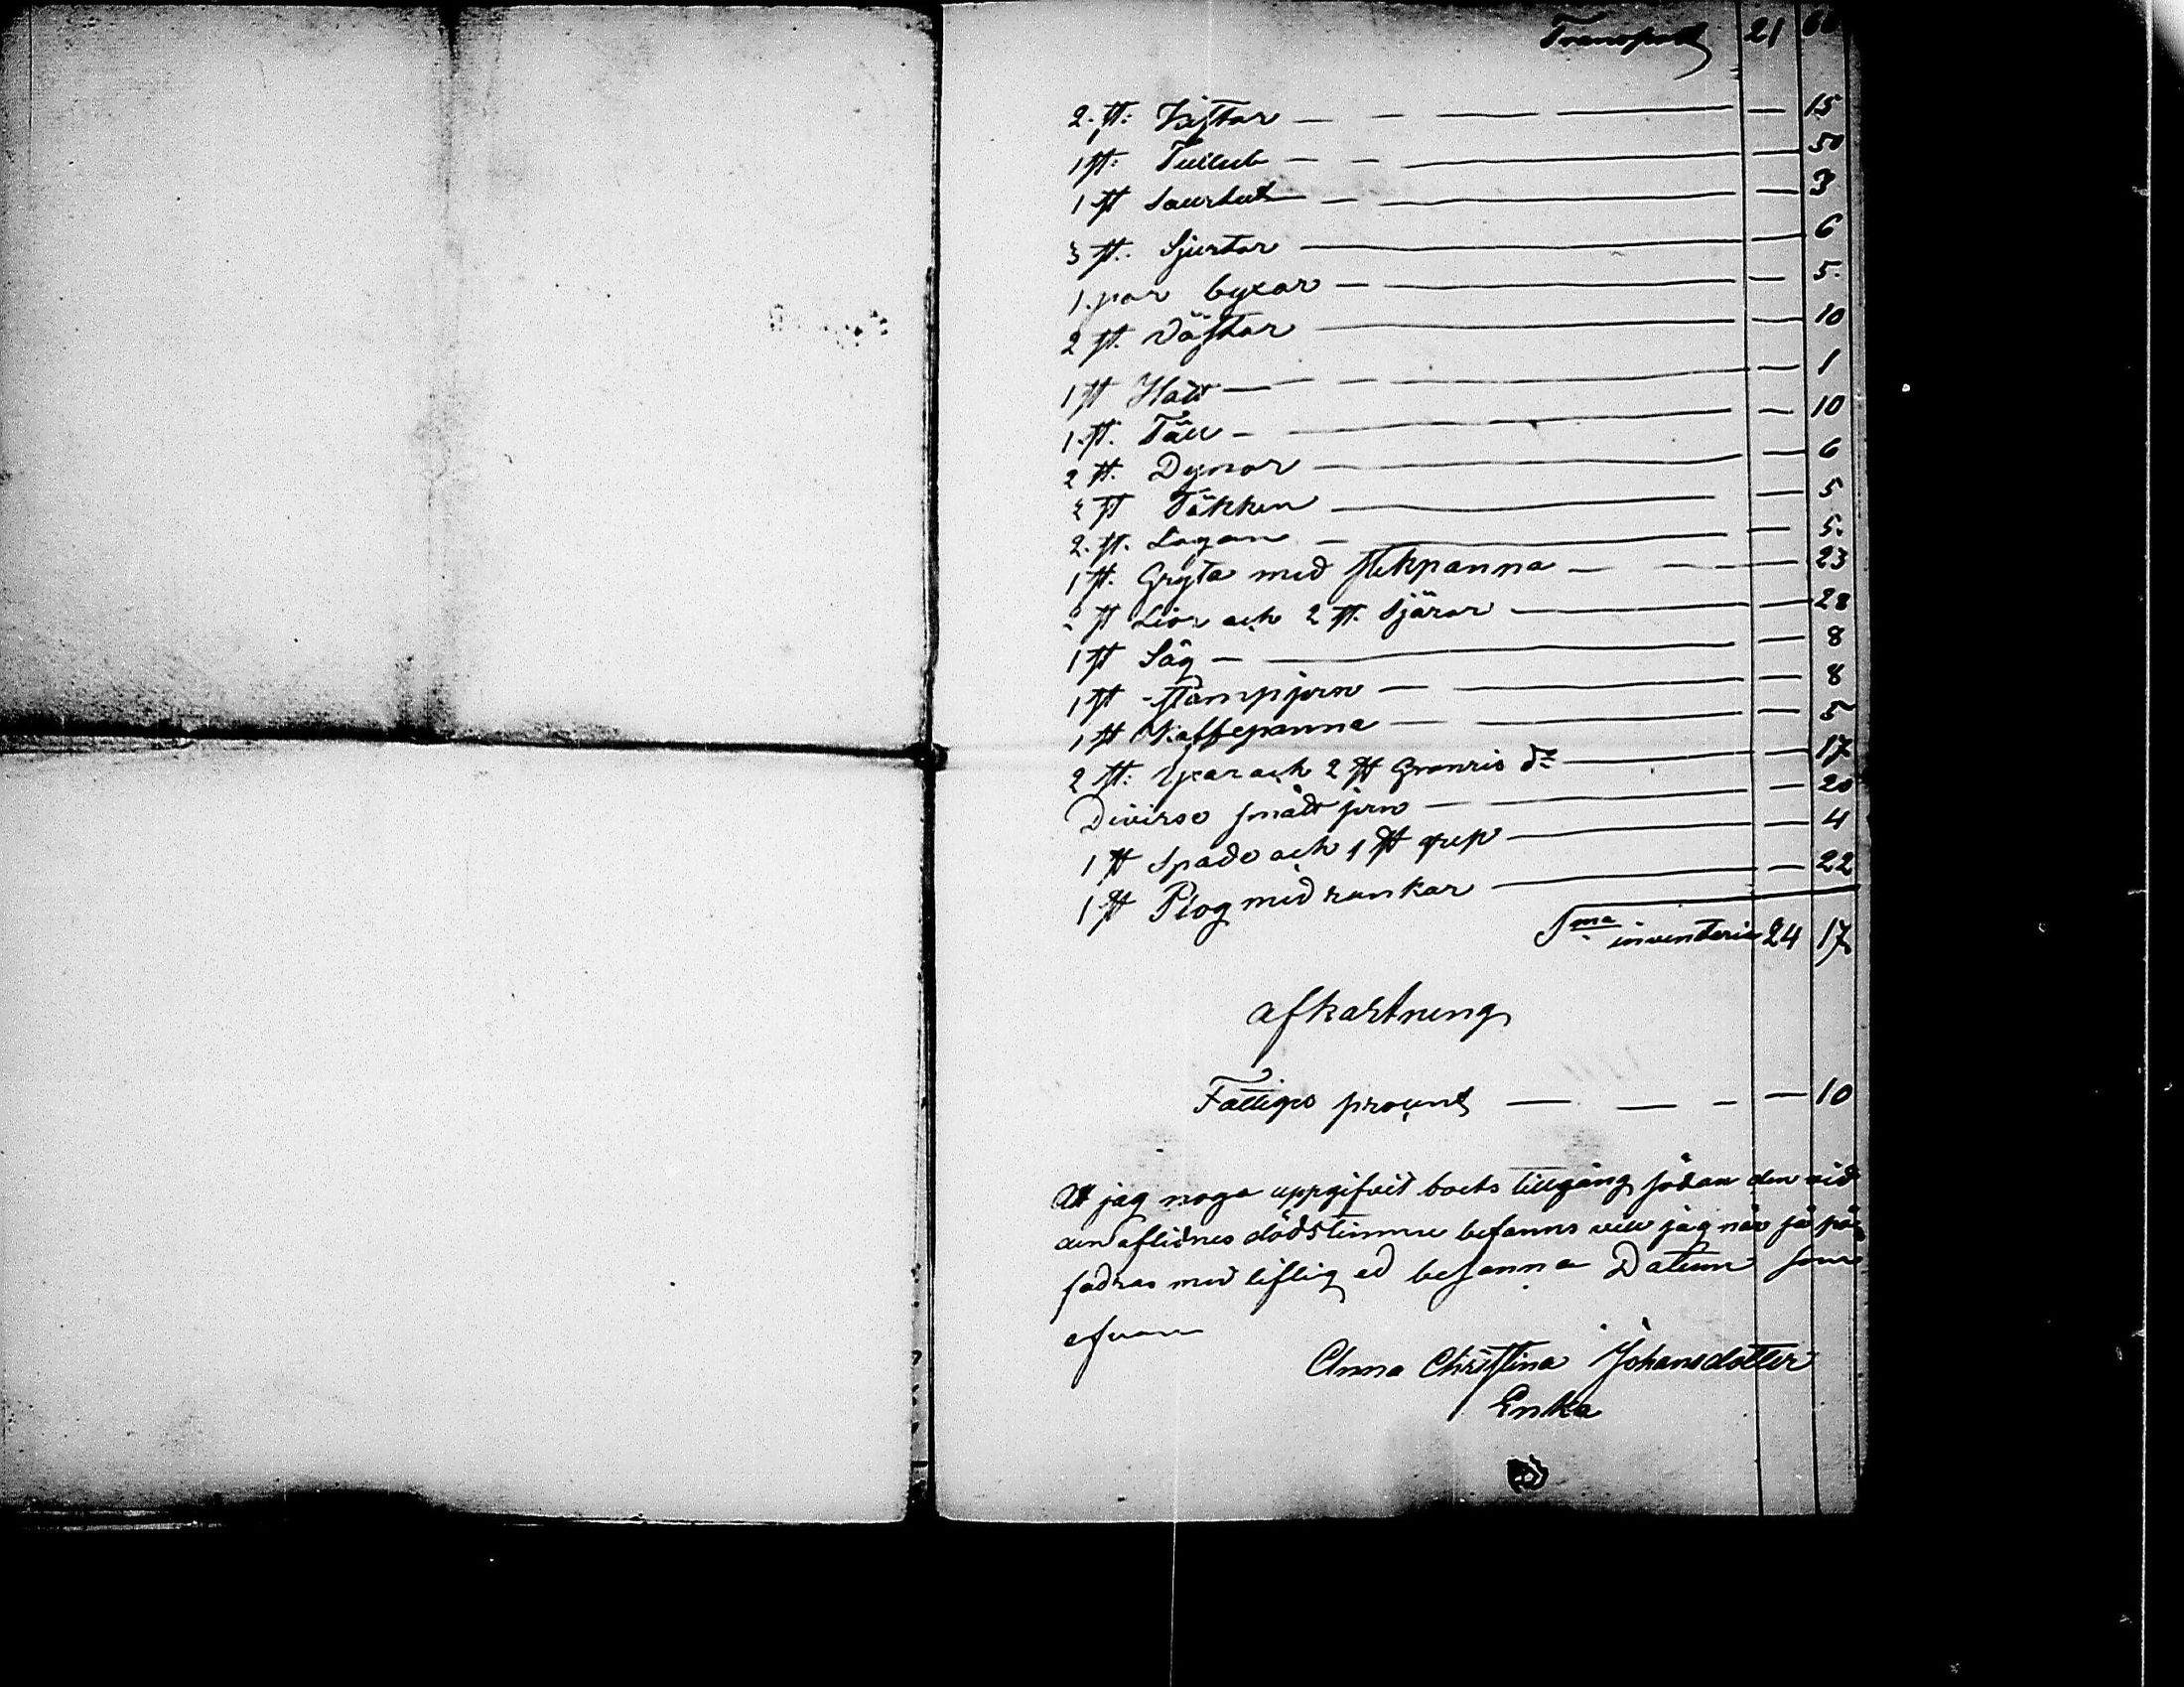 Transport 21 66
2. st: Västar — — — — 15
1 st: Tullub — — — 50
1 st Surtut — — — 3
3 st. Sjurtor — — 6
1. par byxor — — — 5.
2 st. Västar — — 10
1 st Hatt — — — 1
1. st. Täll — — — 10
2 st. Dynor — — 6
2 st Täkken — — 5
2. st. Lagan — — — 5.
1 st. Gryta med stekpanna — — 23
2 st Lior och 2 st. Sjäror — — 28
1 st Såg — — — 8
1 st stampjern — — — 8
1 st Kaffepanna — — — 5
2 st: Yxar och 2 st Granris do — — 17
Diverse smått jern — — — 20
1 st Spade och 1 st grep — — 4
1 st Plog med rankar — — 22
Sma inventarie 24 17
afkortning
Fattiges procent — — — — 10
Att jag noga uppgifvit boets tillgång sådan den vid
den aflidnes dödstimme befanns vill jag när så på
fodras med liflig ed besanna Datum som
ofvan
Anna Christina Johansdotter
Enka